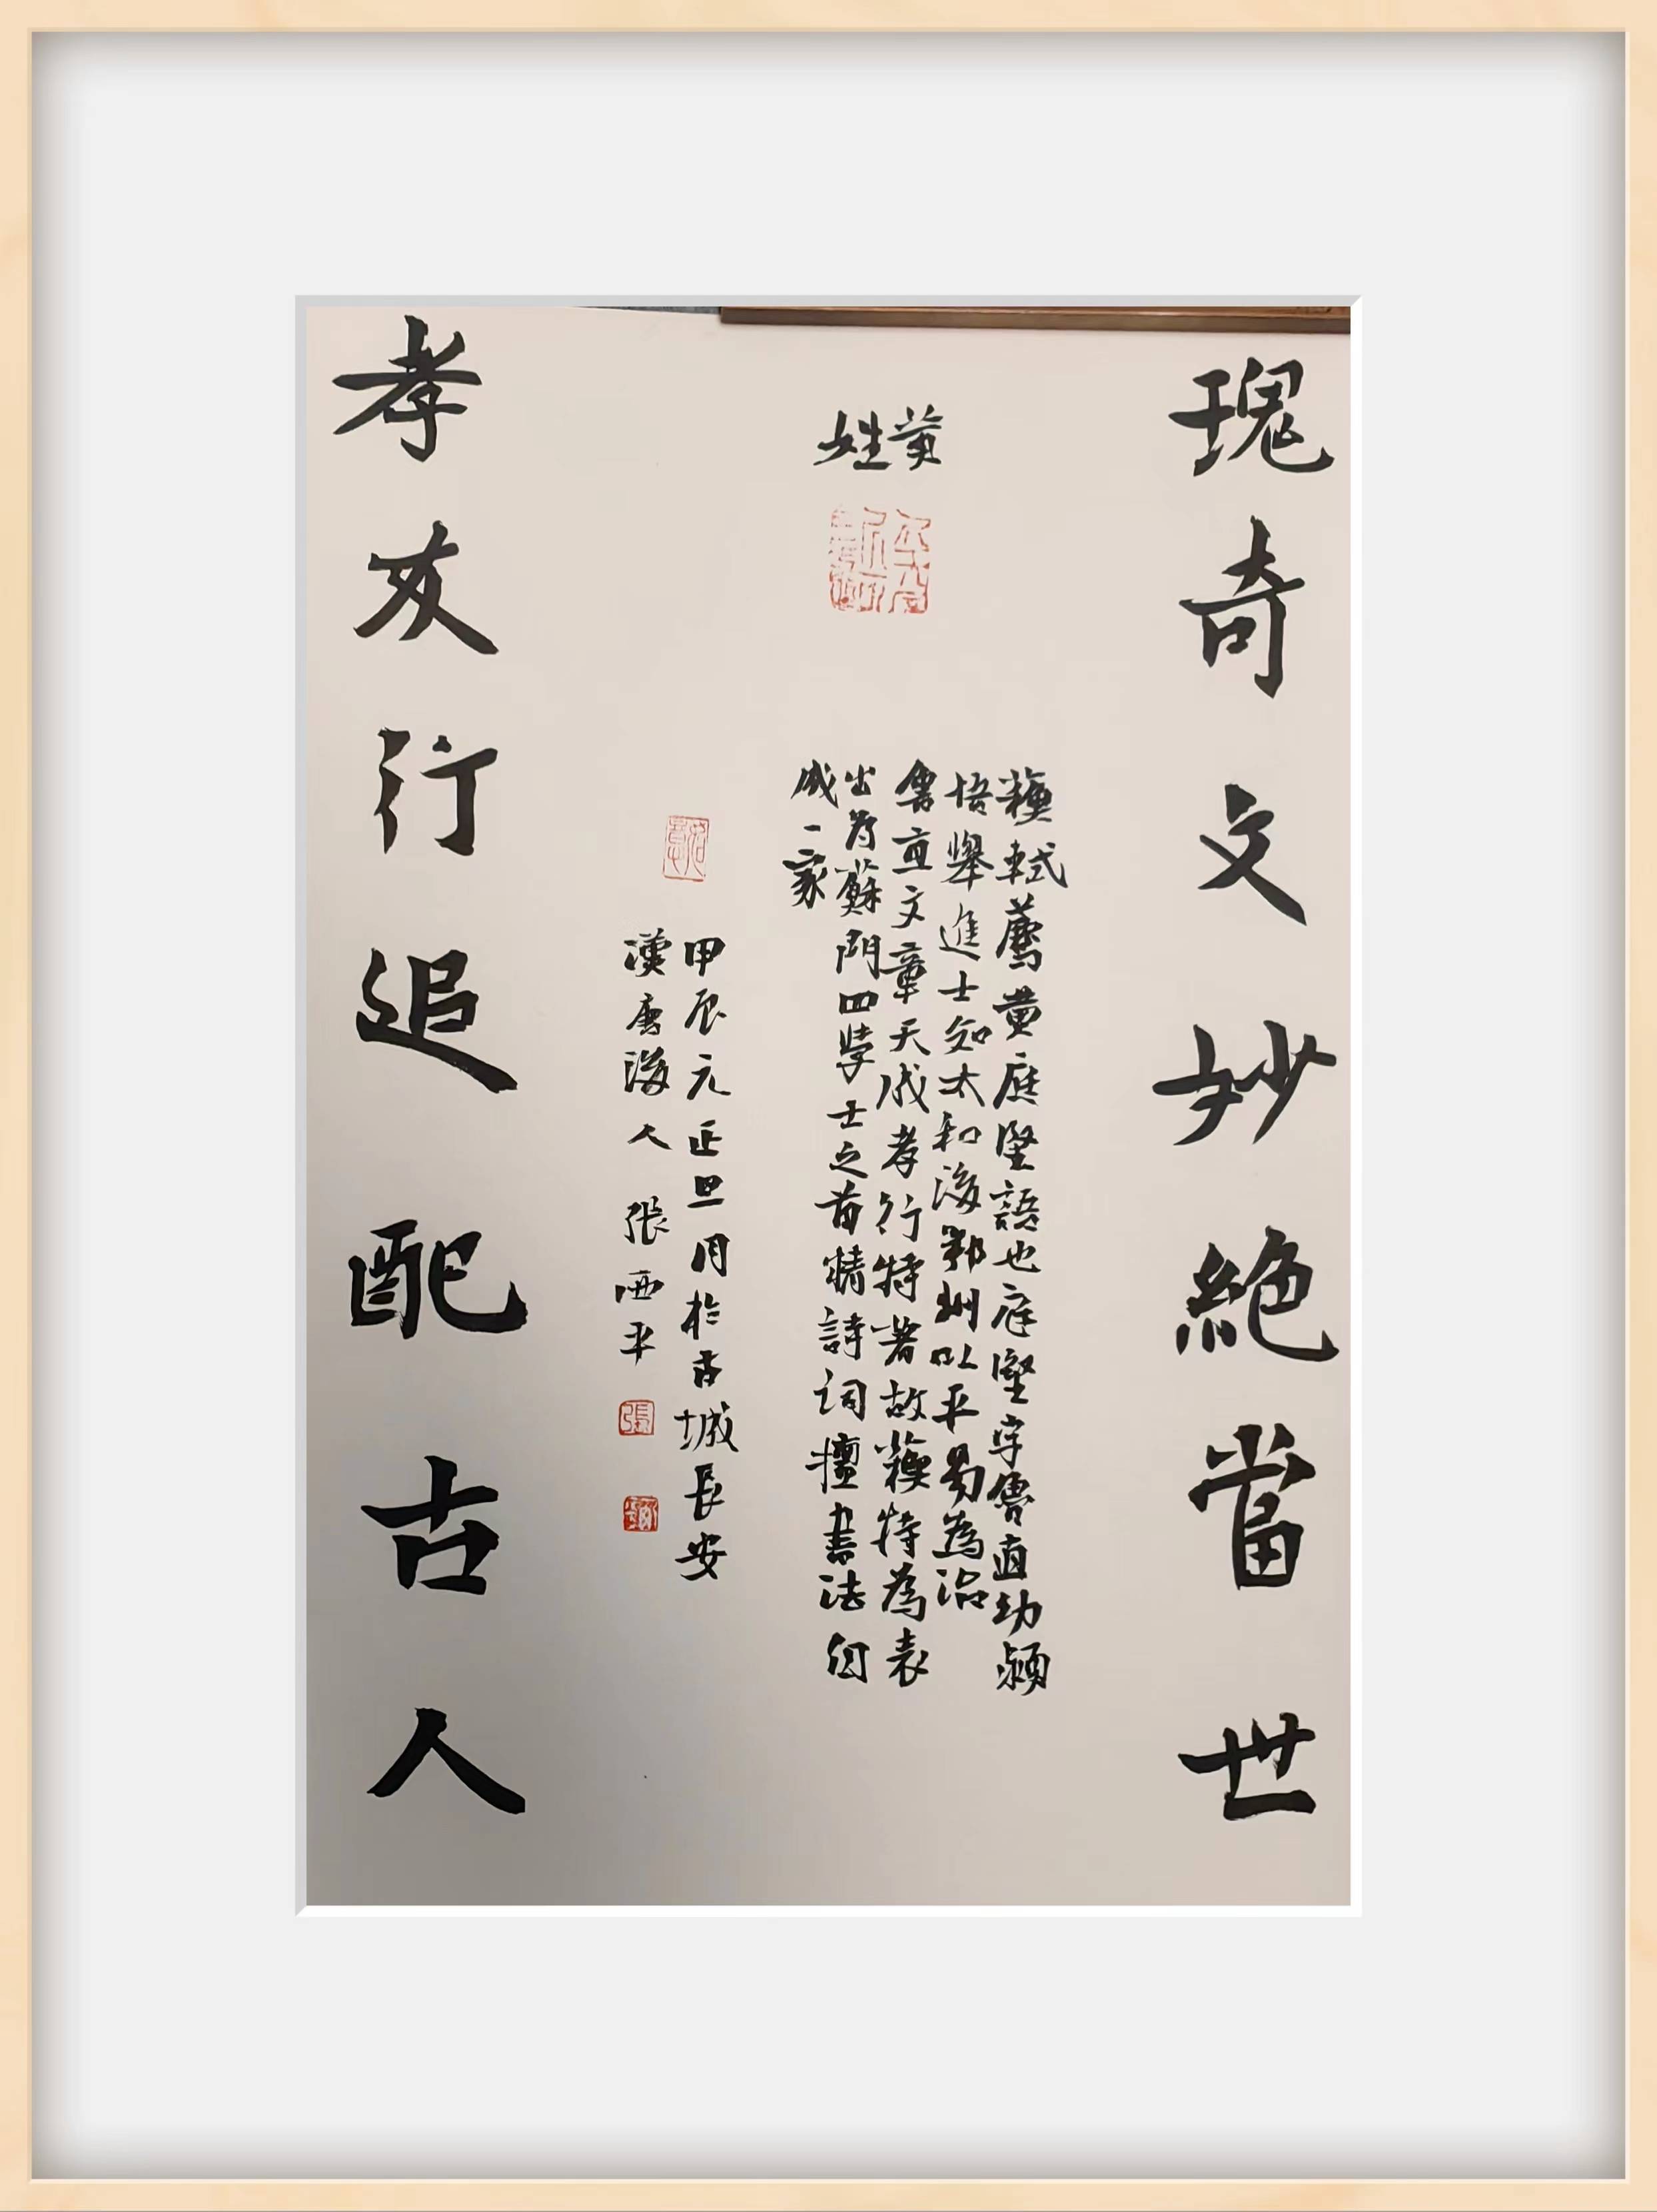 瑰奇文妙絕當世
黄姓
蘇軾薦黄庭堅語也庭堅字魯直幼穎
悟舉進士知太和後鄂州以平易為治
魯直文章天成孝行特著故蘇特為表
出为蘇門四學士之首精詩词擅書法自
成一家
甲辰元正旦月於古城長安
漢唐後人 張西平
張
孝友行追配古人